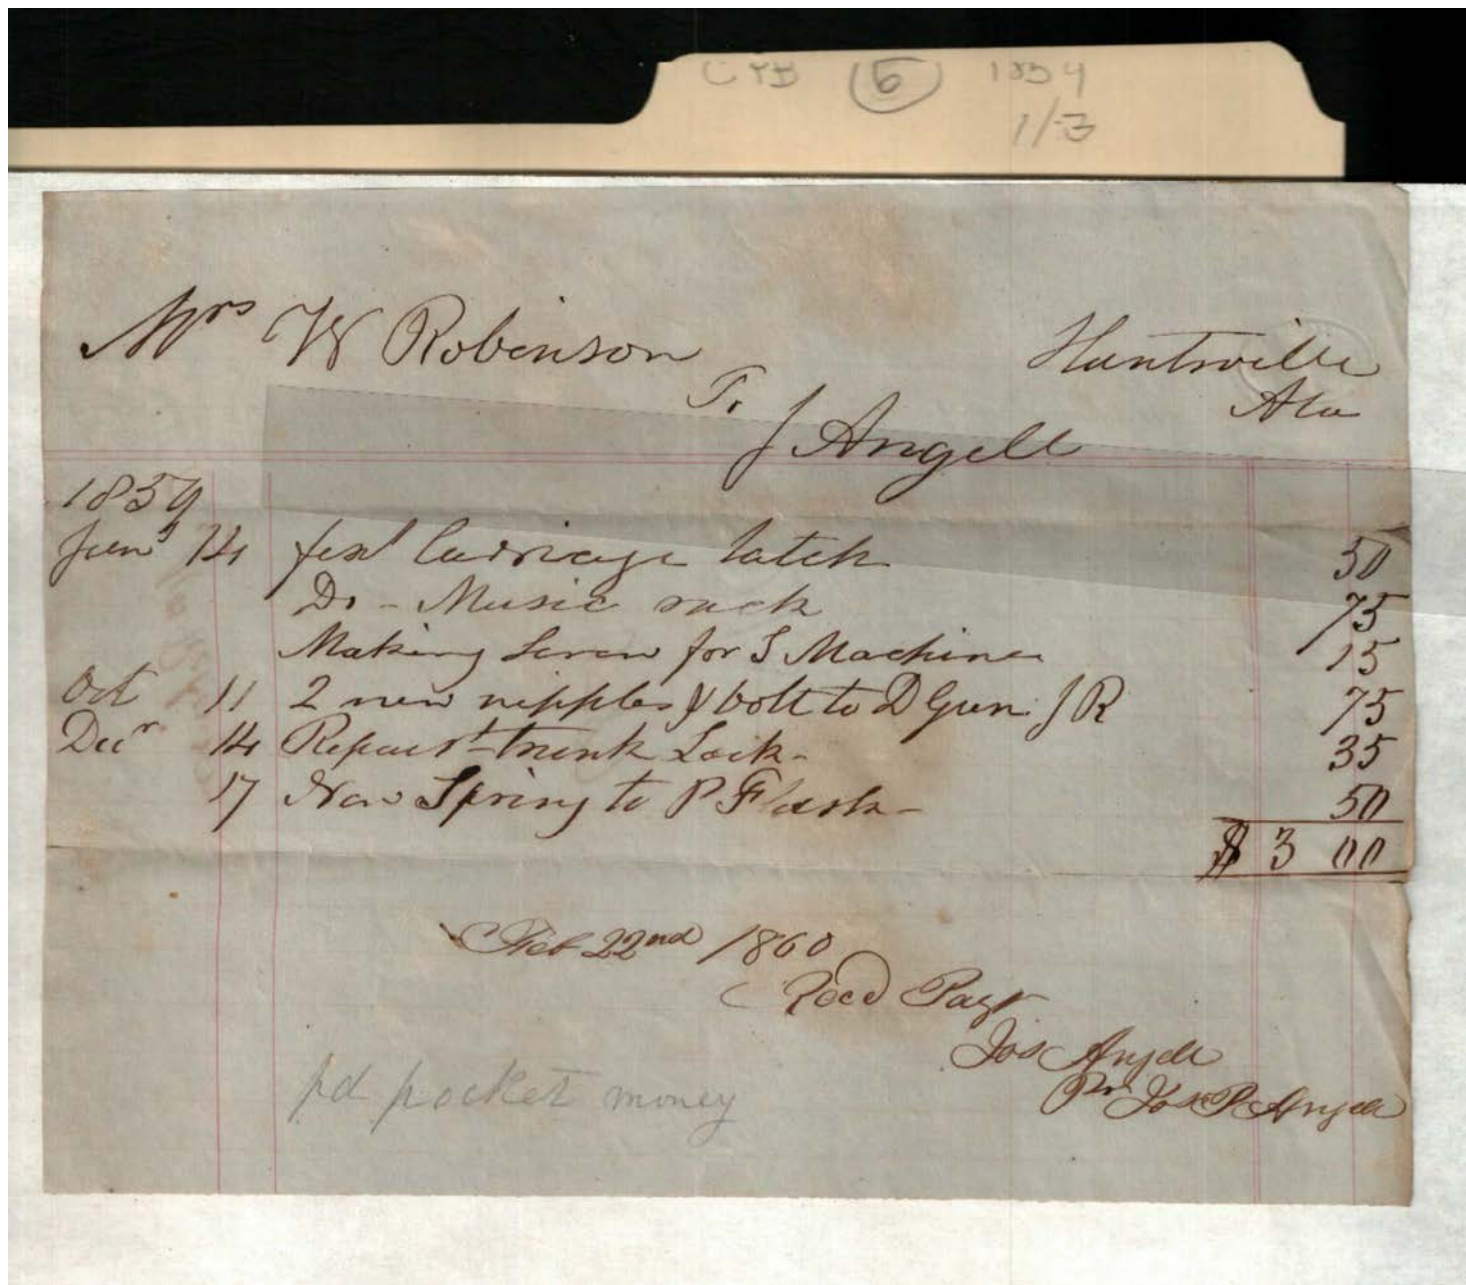 CPB (5) 1859
1/3
Mrs W Robinson
Huntsville
Ala
To
J Angell
1859
June 14 fix'd Carriage latch 50
Do - Music rack 75
Making Screw for S Machine 15
Oct 11 2 new nipples & bolt to D Gun J R 75
Decr 14 Repair'd trunk Lock - 35
17 New Spring to P Flask - 50
$ 3 00
Feb 22nd 1860
Recd Payt
Jos Angell
Per Jos P Angell
pd pocket money